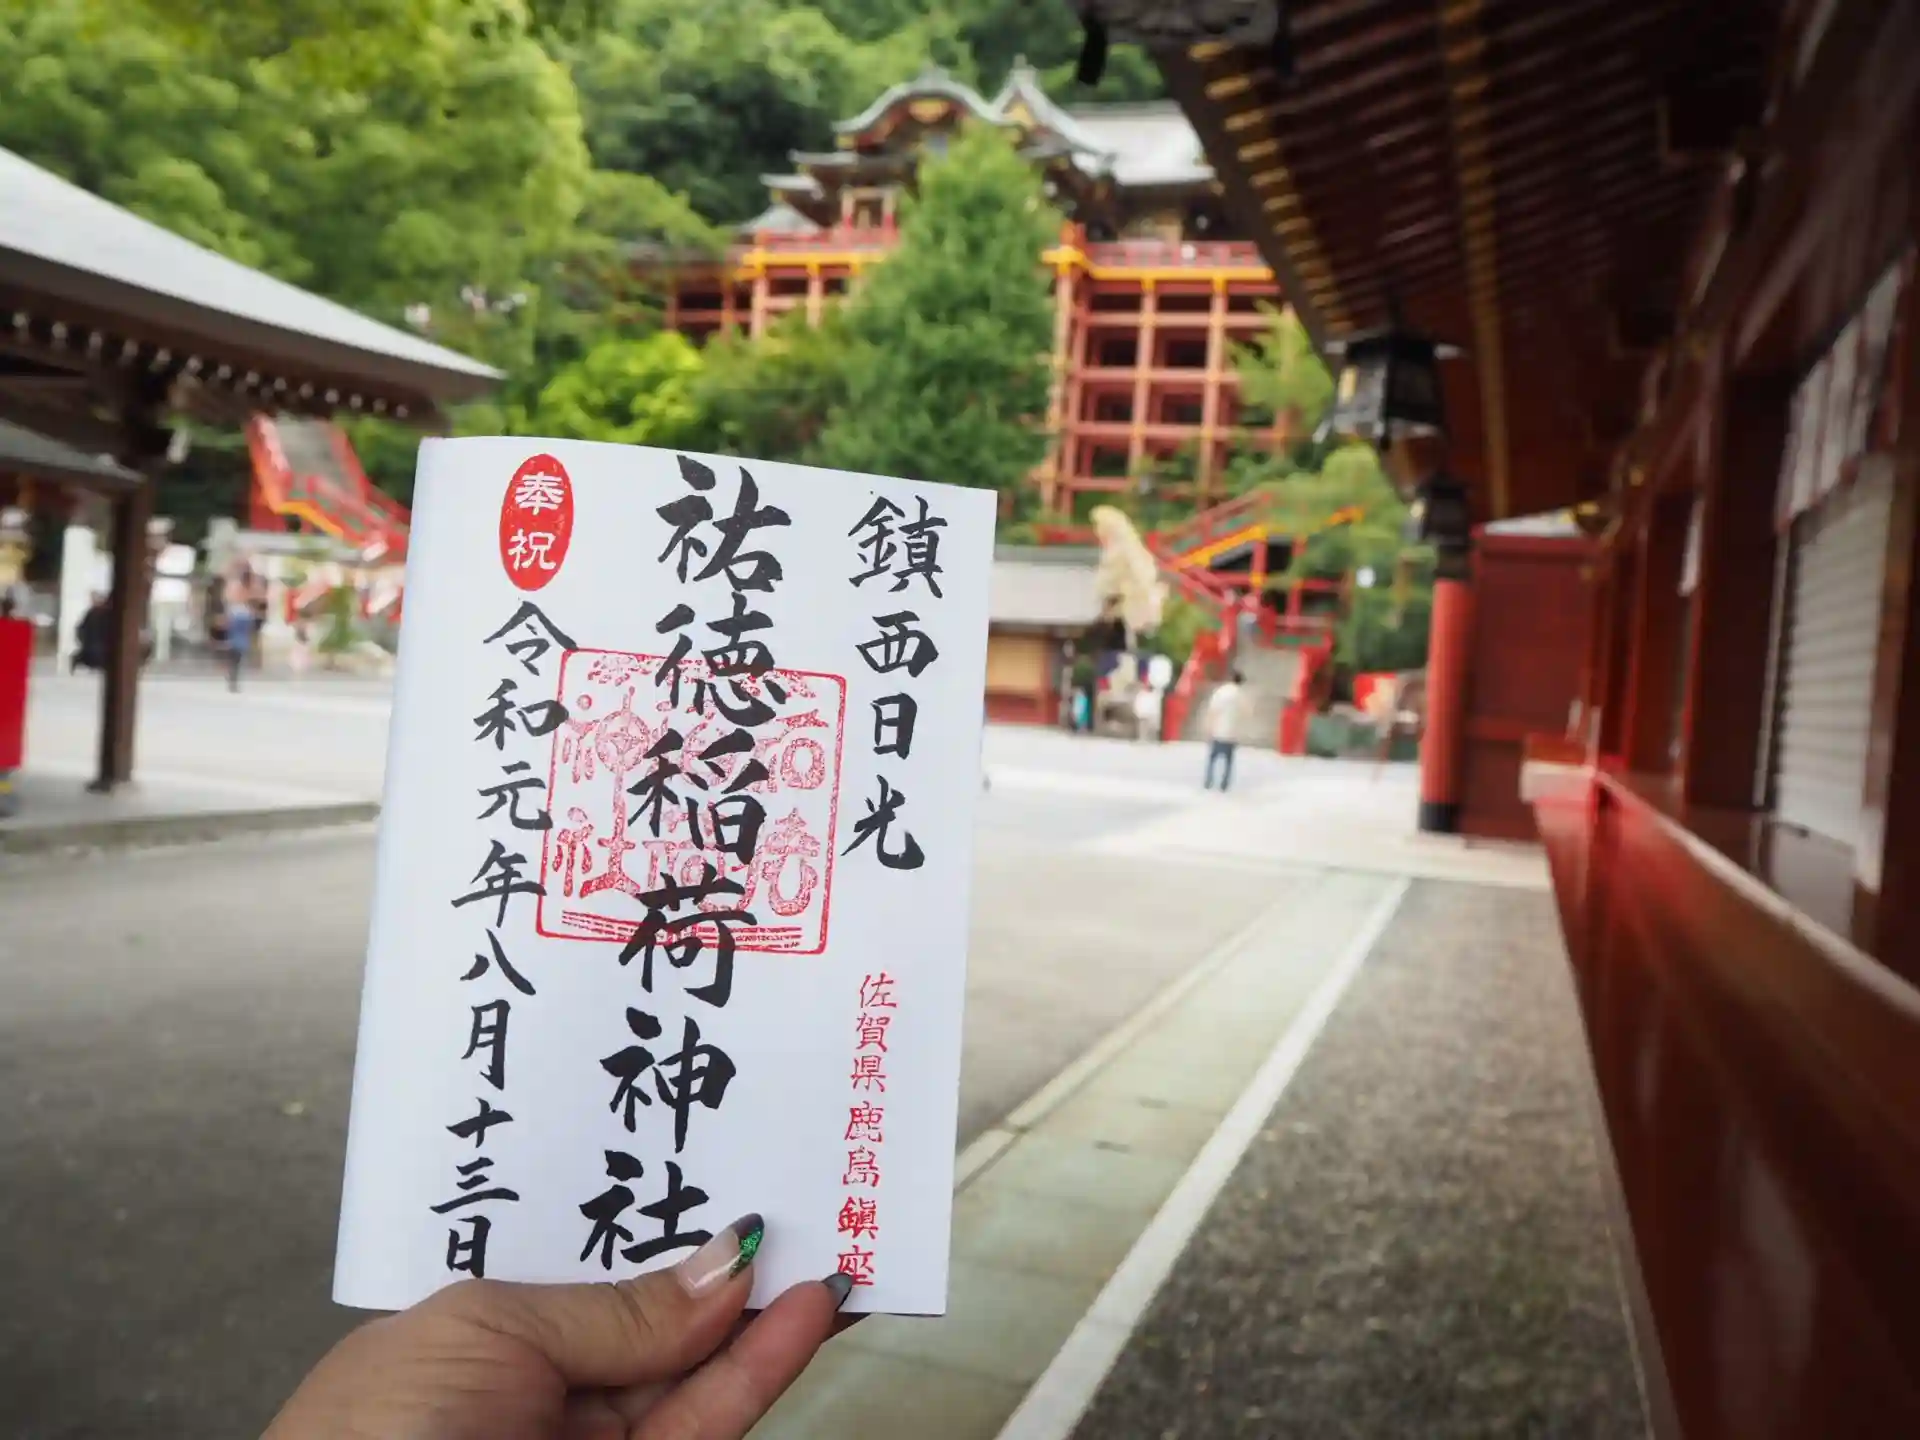 鎮西日光
佐賀県鹿島鎮座
祐徳稲荷神社
奉祝
令和元年八月十三日